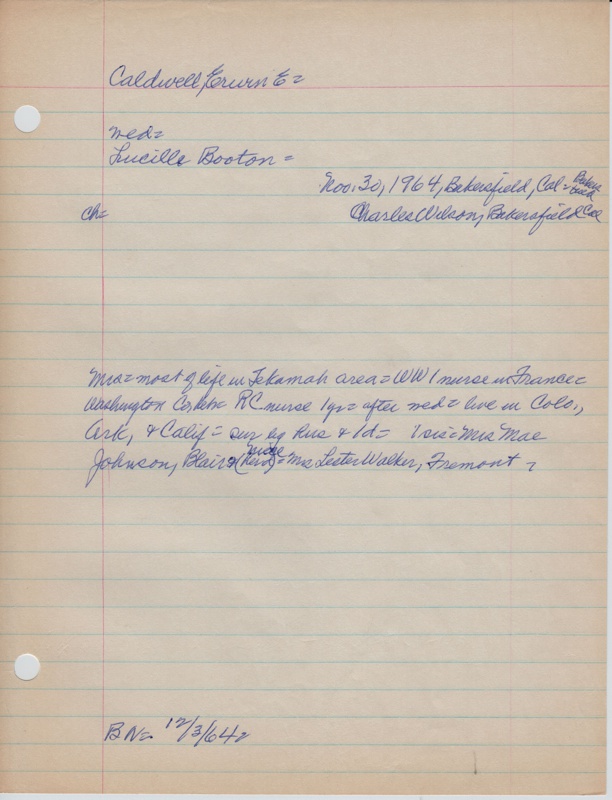 Caldwell, Erwin E =
med =
Lucille Booton =
Nov. 30, 1964, Bakersfield, Cal =
ch = Charles Wilson, Bakersfield Cal
Mrs = most of life in Tekamah area = WW 1 nurse in France =
Washington Co RC nurse 1 yr = after med = live in Colo.,
Ark, & Calif = sur by hus & 1 d = 1 sis = Mrs Mae
Johnson, Blair = niece = Mrs Lester Walker, Fremont =
BN = 12/3/64 =